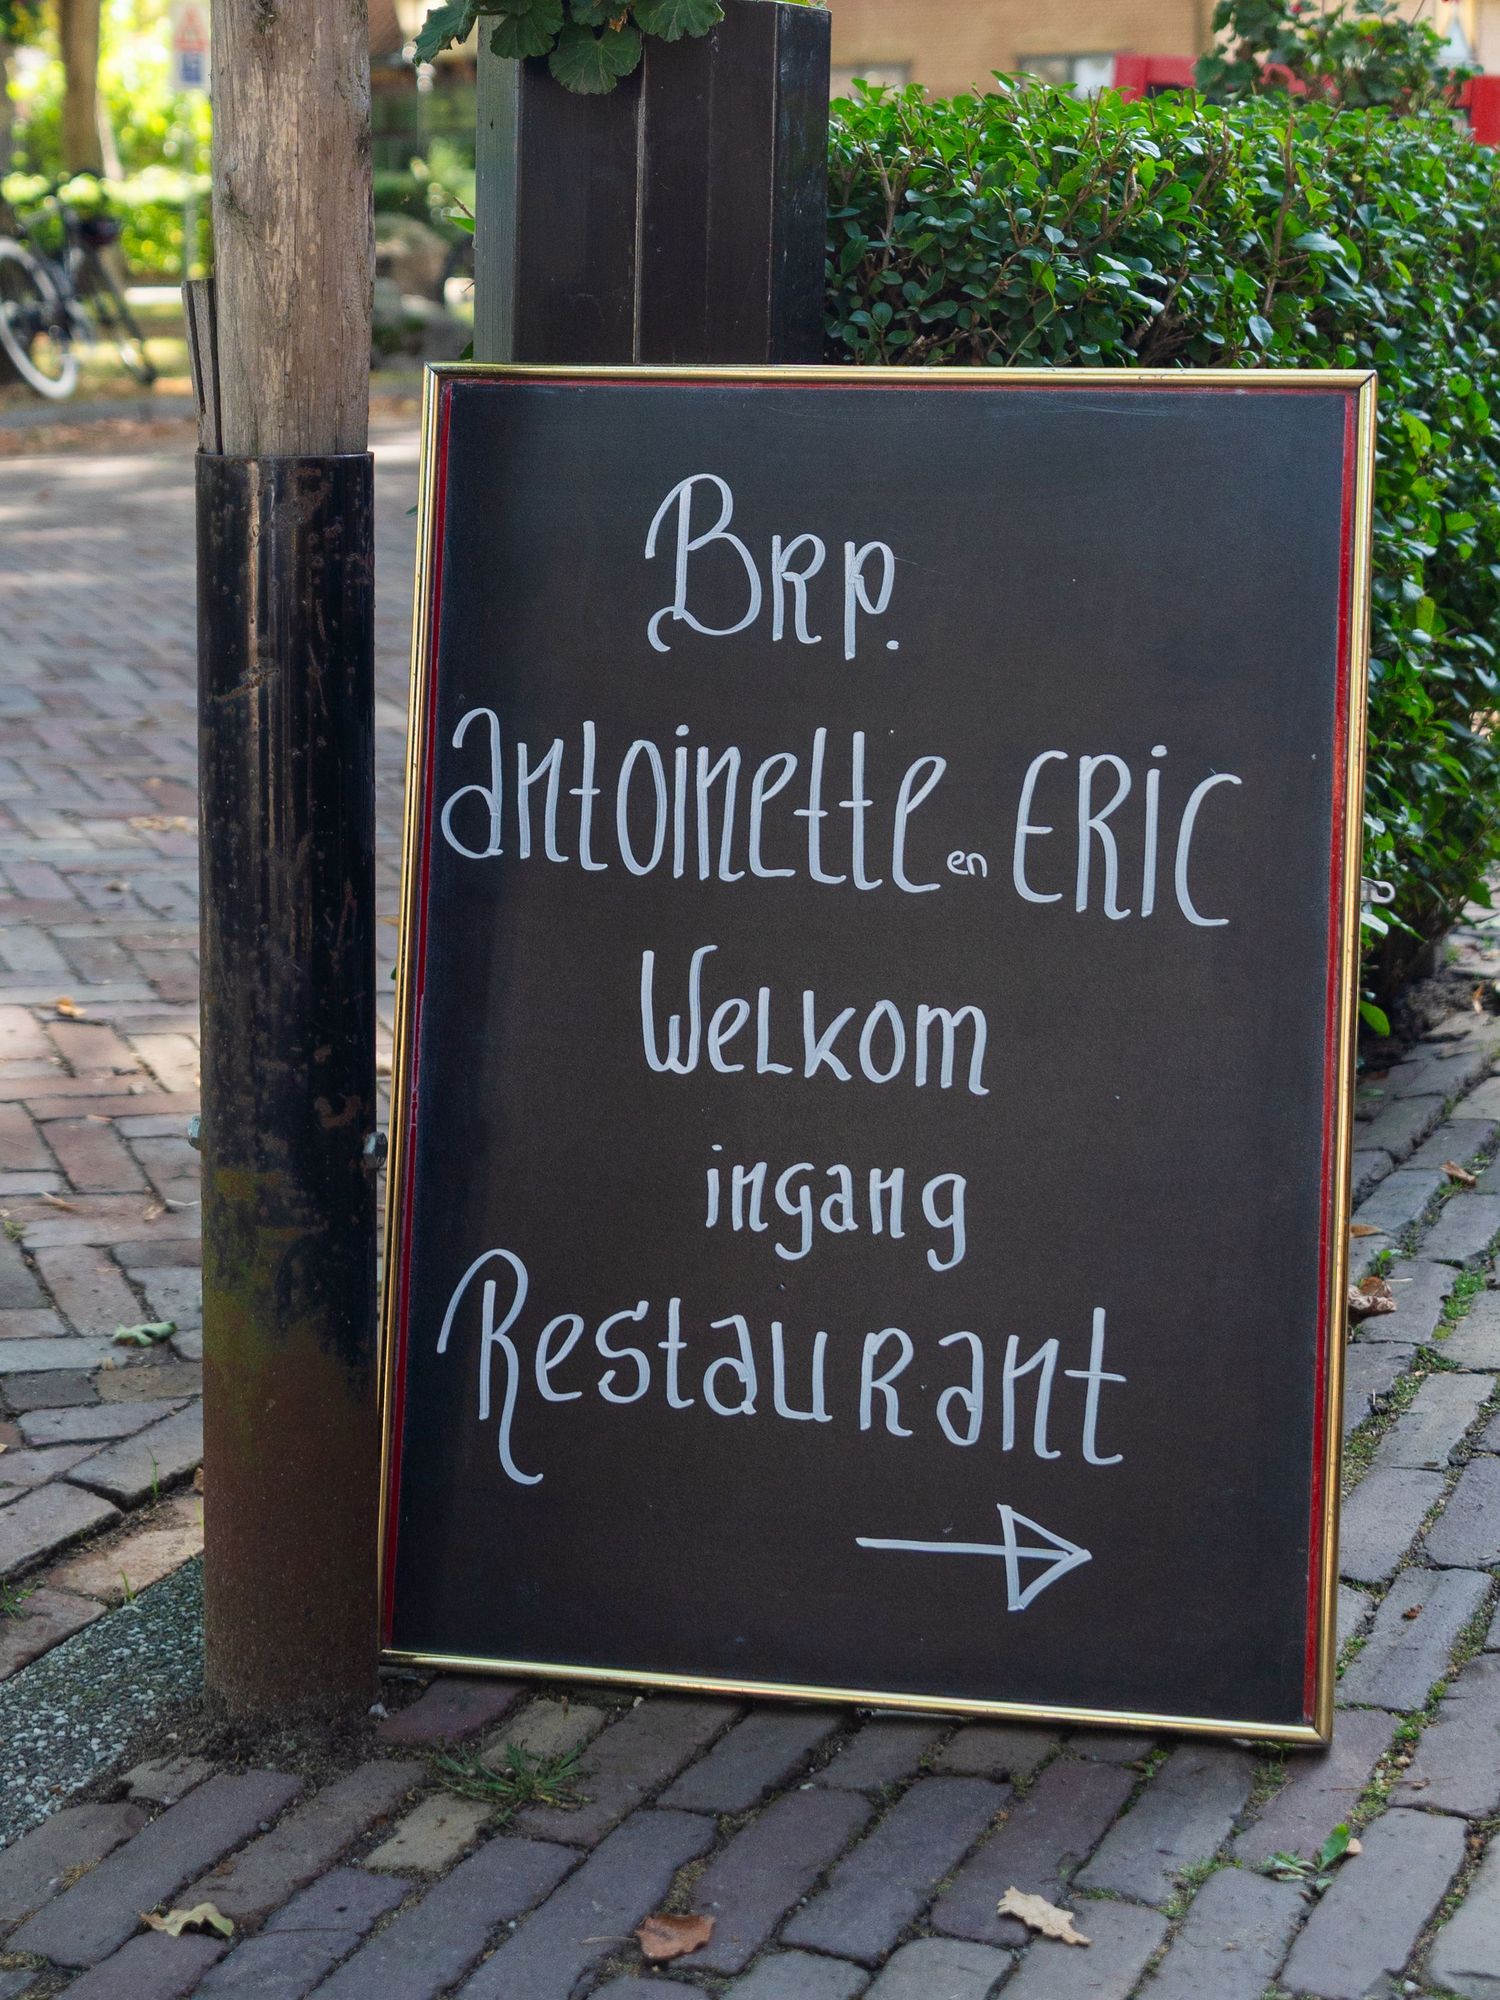 Brp.
Antoinette en Eric
Welkom
ingang
Restaurant